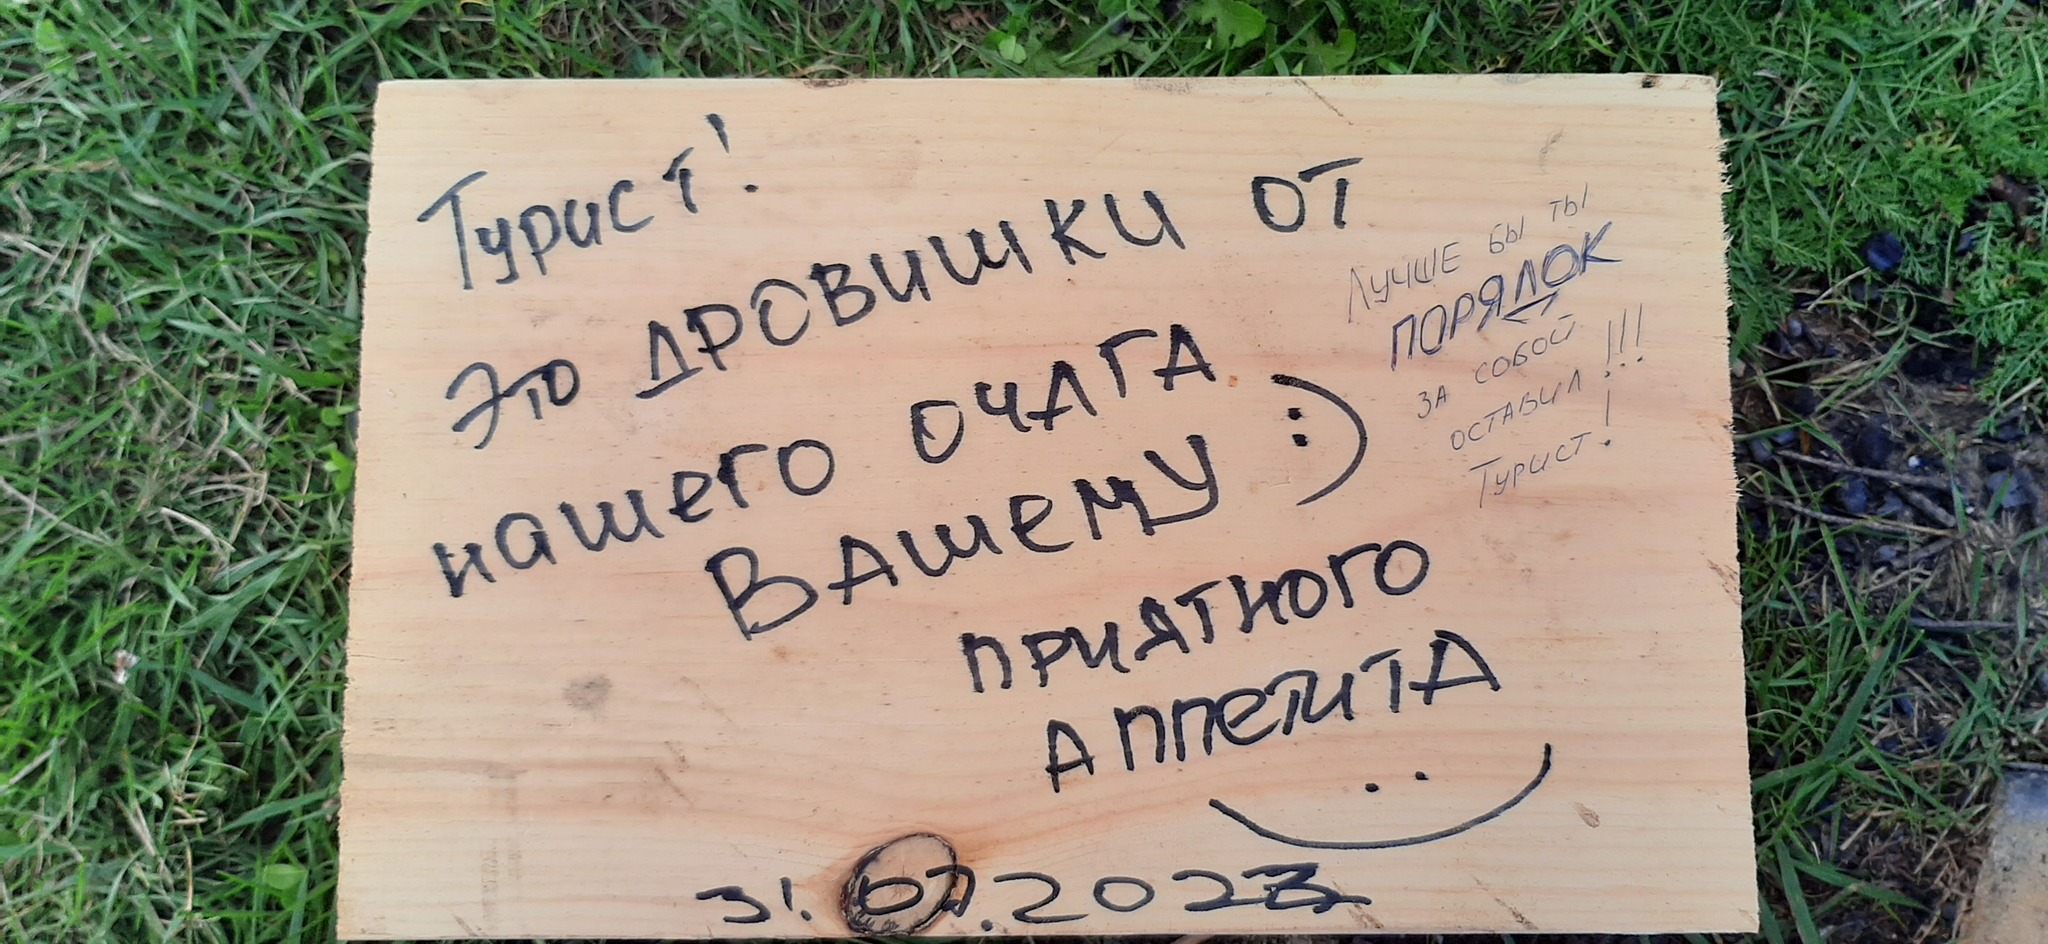 Турист!
Это дровишки от
нашего очага
Вашему :)
приятного
аппетита
Лучше бы ты
ПОРЯДОК
за собой
оставил!!!
Турист!
31.07.2023